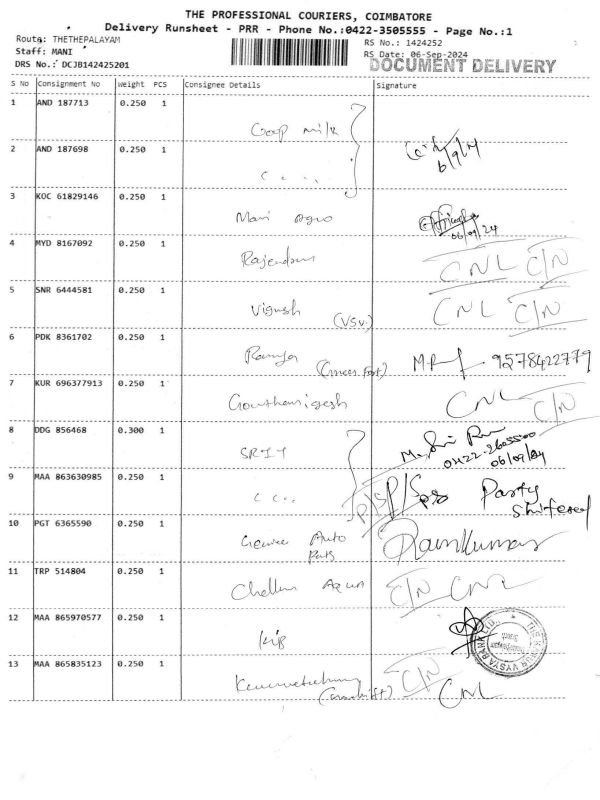 THE PROFESSIONAL COURIERS, COIMBATORE
Delivery Runsheet - PRR - Phone No.:0422-3505555 - Page No.:1
Route: THETHEPALAYAM
RS No.: 1424252
Staff: MANI
RS Date: 06-Sep-2024
DRS No.: DCJB142425201
DOCUMENT DELIVERY
S No Consignment No Weight PCS Consignee Details Signature
1 AND 187713 0.250 1 Goap milk
2 AND 187698 0.250 1 6/9/24
3 KOC 61829146 0.250 1 Mani Agro 06/09/24
4 MYD 8167092 0.250 1 Rajendran CNL C/N
5 SNR 6444581 0.250 1 Vignesh (VSV) CNL C/N
6 PDK 8361702 0.250 1 Ramya 9578422779
7 KUR 696377913 0.250 1 CNL C/N
8 DDG 856468 0.300 1 SRIT 0422-2605500 06/09/24
9 MAA 863630985 0.250 1 P/S Party Shifted
10 PGT 6365590 0.250 1 Auto Parts Ramkumar
11 TRP 514804 0.250 1 Aqua C/N CNL
12 MAA 865970577 0.250 1 VYSYA BANK LTD.
13 MAA 865835123 0.250 1 C/N CNL